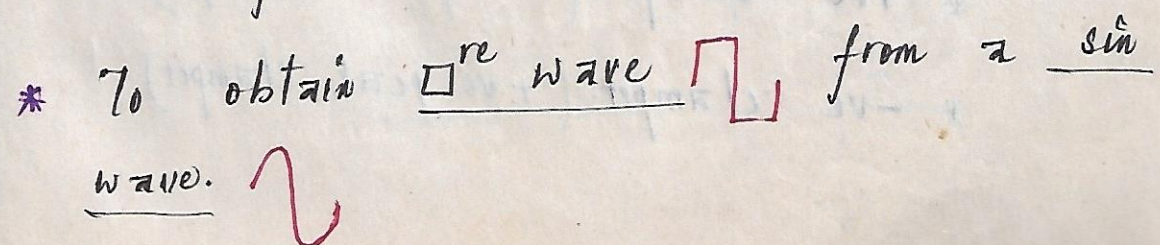 * To obtain □re wave from a sin
wave.